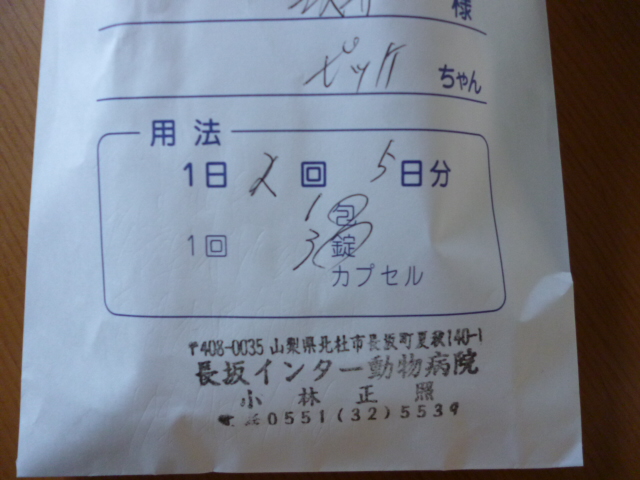 様
ピック ちゃん
用法
1日 2 回 5 日分
1 包
1回 3 錠
カプセル
〒408-0035 山梨県北杜市長坂町夏秋140-1
長坂インター動物病院
小林正照
電話0551(32)5539